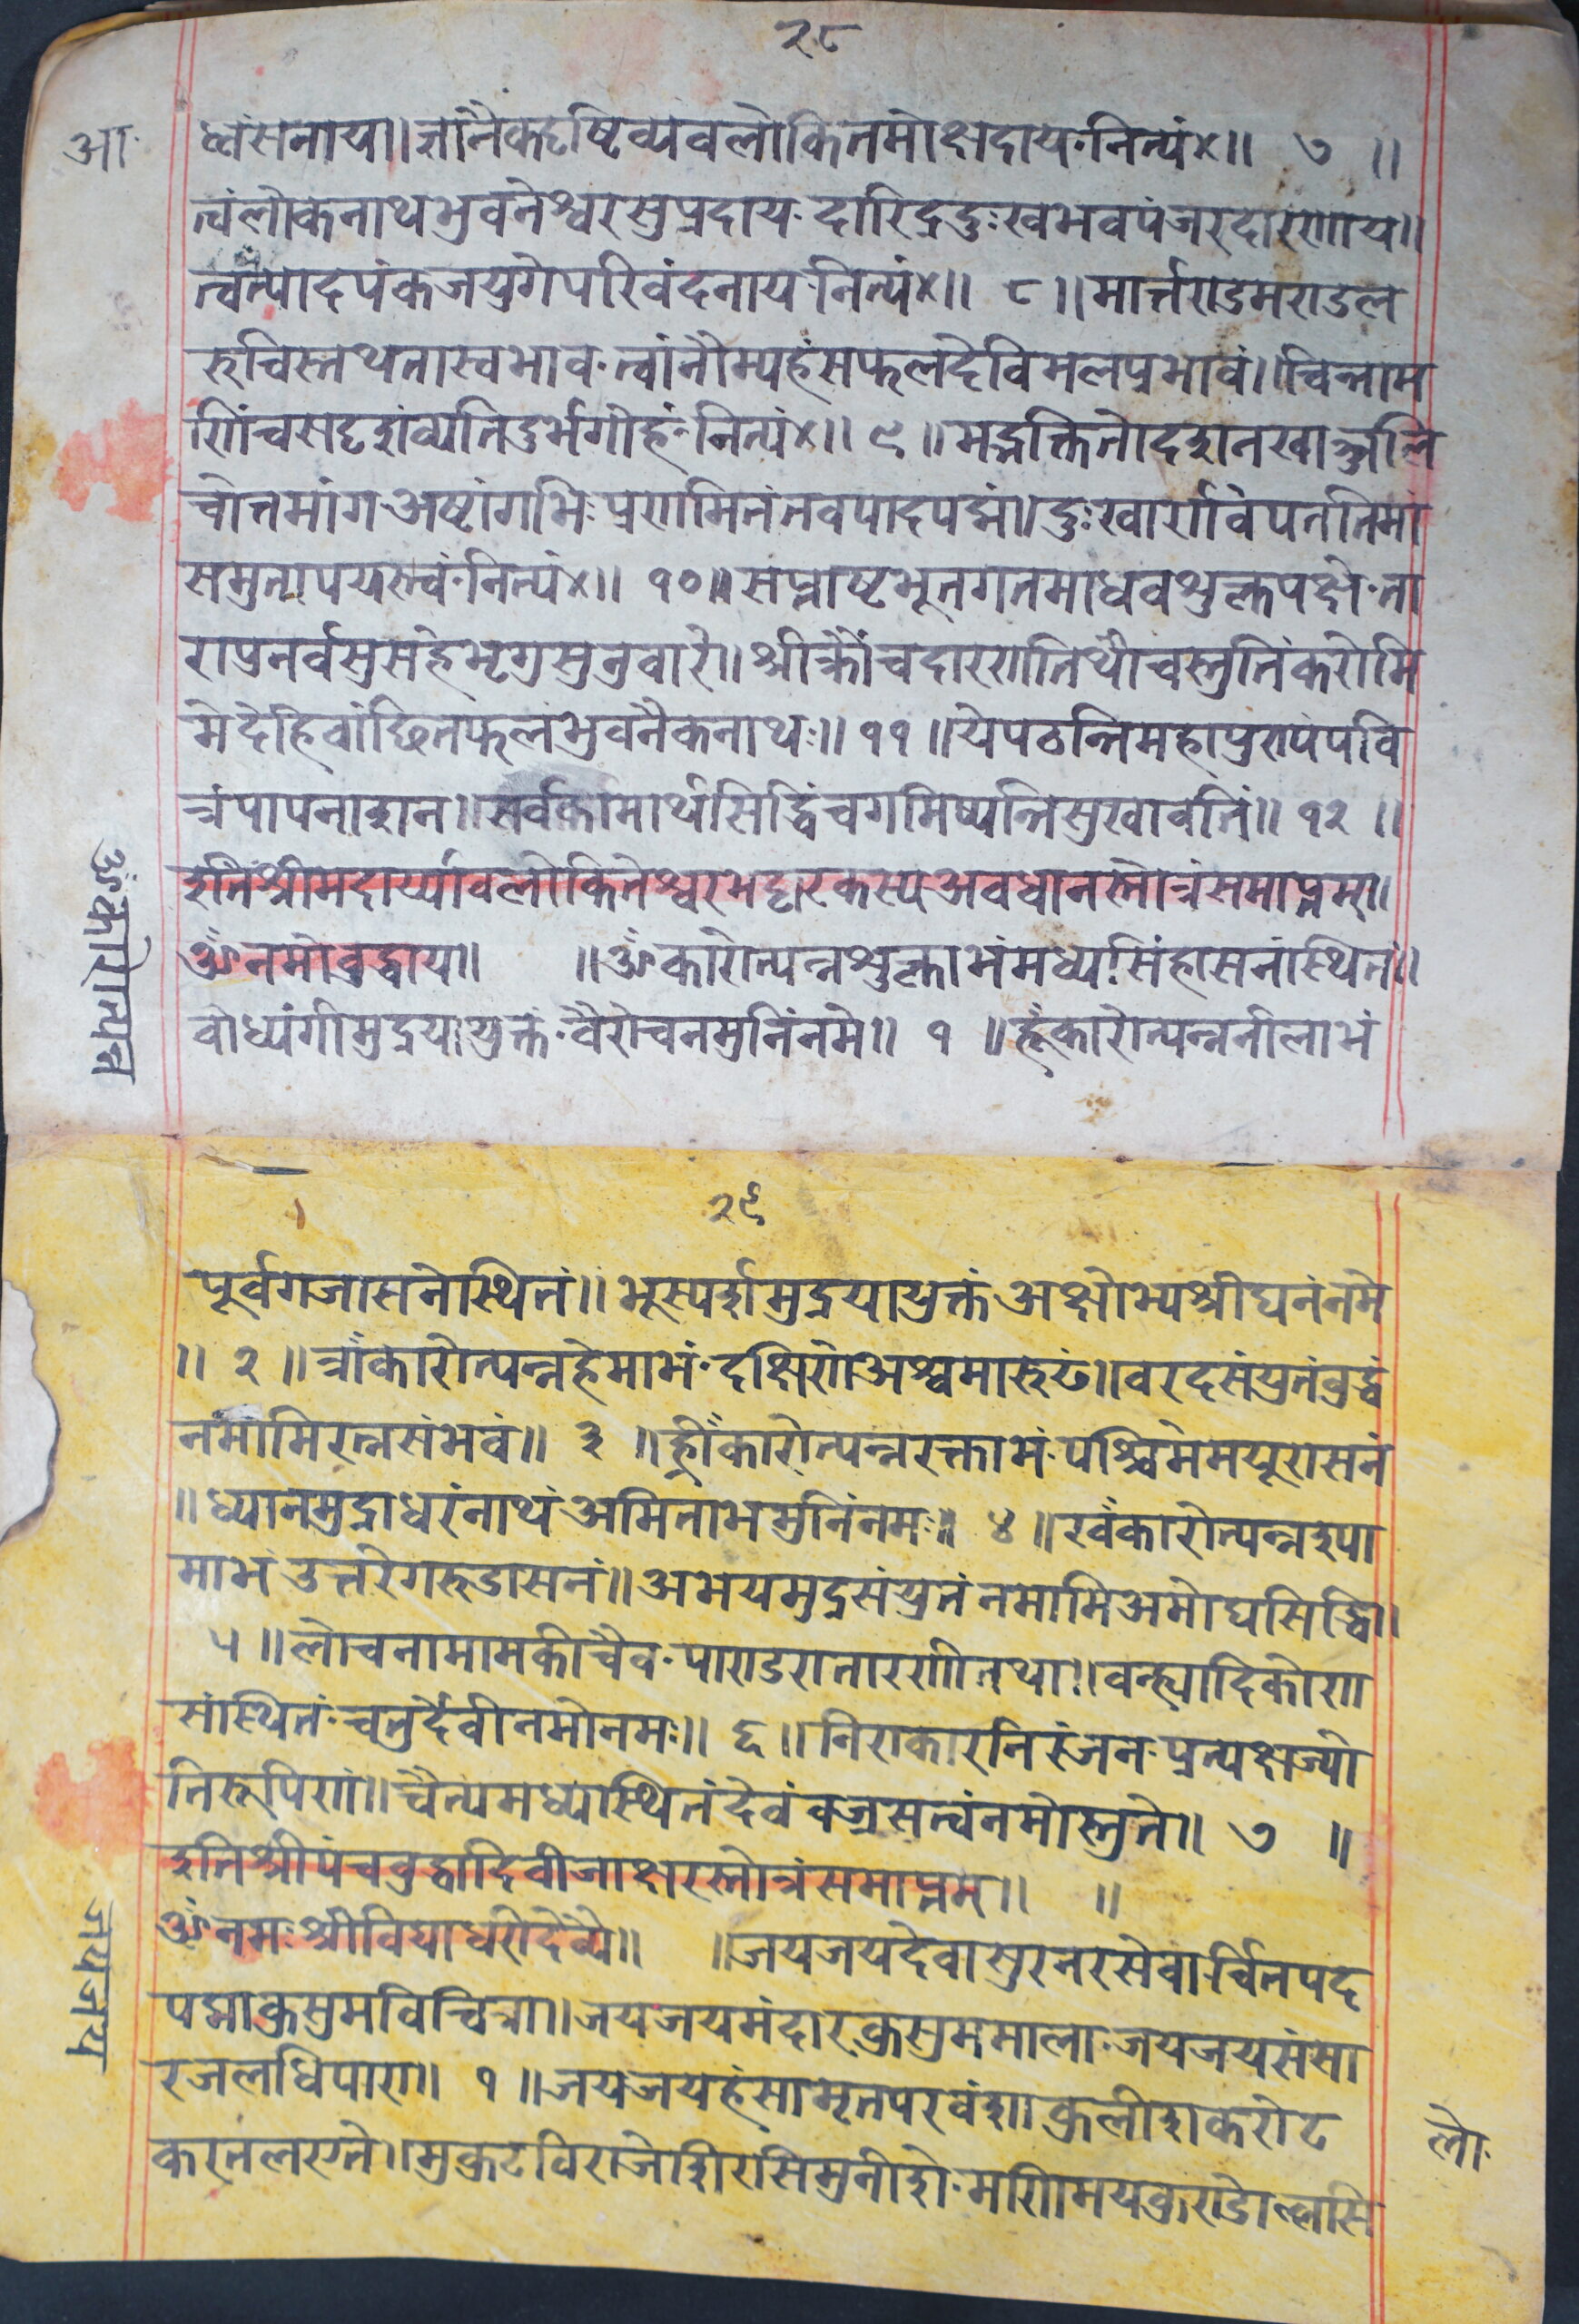 २८
आ
ध्वंसनाय॥ज्ञानैकदृष्टिव्यवलोकितमोक्षदाय॰नित्यं४॥ ७ ॥
त्वंलोकनाथभुवनेश्वरसुप्रदाय॰दारिद्रदुःखभवपंजरदारणाय॥
त्वत्पादपंकजयुगेपरिवंदनाय॰नित्यं४॥ ८॥मार्त्तण्डमण्डल
रुचिस्तथतास्वभाव॰त्वांनौम्यहंसफलदेविमलप्रभावं॥चिन्ताम
णिंचसदृशंव्यतिदुर्भगोहं॰नित्यं४॥ ९॥मद्भक्तितोदशनखाञ्जलि
चोत्तमांग॰अष्टांगभिःप्रणमितंतवपादपद्मं॥दुःखार्णवेपततिमां
समुतापयस्त्वं॰नित्यं४॥ १०॥सप्ताष्टभूतगतमाधवशुक्लपक्षे॰ता
रापुनर्वसुसहेभृगुसुनुवारे॥श्रीक्रौंचदारणतिथौचस्तुतिंकरोमि
मेदेहिवांछितफलंभुवनैकनाथः॥११॥येपठन्तिमहापुरुषंपवि
त्रंपापनाशन॥सर्वकामार्थसिद्धिंचगमिष्यन्तिसुखावतिं॥१२॥
इतिश्रीमदार्य्यावलोकितेश्वरभट्टारकस्यअवधानस्तोत्रंसमाप्तम्॥
ॐनमोबुद्धाय॥ ॥ॐकारोत्पन्नशुक्लाभंमध्यसिंहासनास्थितं॥
बोध्यंगीमुद्रयायुक्तं॰वैरोचनमुनिंनमे॥ १ ॥हूंकारोत्पन्ननीलाभं
ॐकारोत्पन्न
२९
पूर्वगजासनेस्थितं॥भूस्पर्शमुद्रयायुक्तंअक्षोभ्यश्रीघनंनमे
॥ २ ॥त्राँकारोत्पन्नहेमाभं॰दक्षिणेअश्वमारुढं॥वरदसंयुतंबुद्धं
नमामिरत्नसंभवं॥ ३ ॥ह्रीँकारोत्पन्नरक्ताभं॰पश्चिमेमयूरासनं
॥ध्यानमुद्राधरंनाथंअमिताभमुनिंनमः॥ ४ ॥खँकारोत्पन्नश्या
माभंउत्तरेगरुडासनं॥अभयमुद्रसंयुतंनमामिअमोघसिद्धि॥
५ ॥लोचनामामकीचैव॰पाण्डरातारणीतथा॥वन्ह्यादिकोण
संस्थितं॰चतुर्देवीनमोनमः॥ ६ ॥निराकारनिरंजन॰प्रत्यक्षज्यो
तिरूपिणं॥चैत्यमध्यस्थितंदेवंवज्रसत्वंनमोस्तुते॥ ७ ॥
इतिश्रीपंचबुद्धादिवीजाक्षरस्तोत्रंसमाप्तम्॥ ॥
ॐनमःश्रीविद्याधरीदेव्यै॥ ॥जयजयदेवासुरनरसेवार्चितपद
पद्माकुसुमविचित्रा॥जयजयमंदारकुसुममाला॰जयजयसंसा
रजलधिपारा॥ १ ॥जयजयहंसामृतपरवंश॥कुलीशकरोट
करतलरग्ने॥मुकुटविराजेशिरसिमुनीशे॰मणिमयकुण्डोल्लसि
जयजय
ले